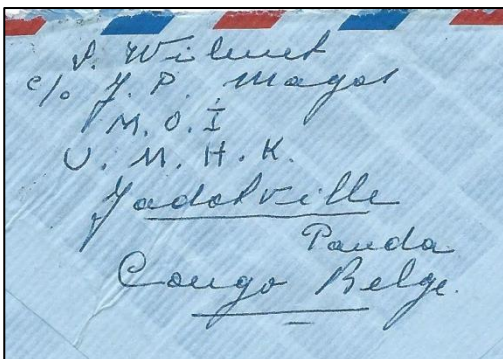 J. Wilmet
c/o J. P. Magos
M. O. I
U. M. H. K.
Jadotville
Panda
Congo Belge.